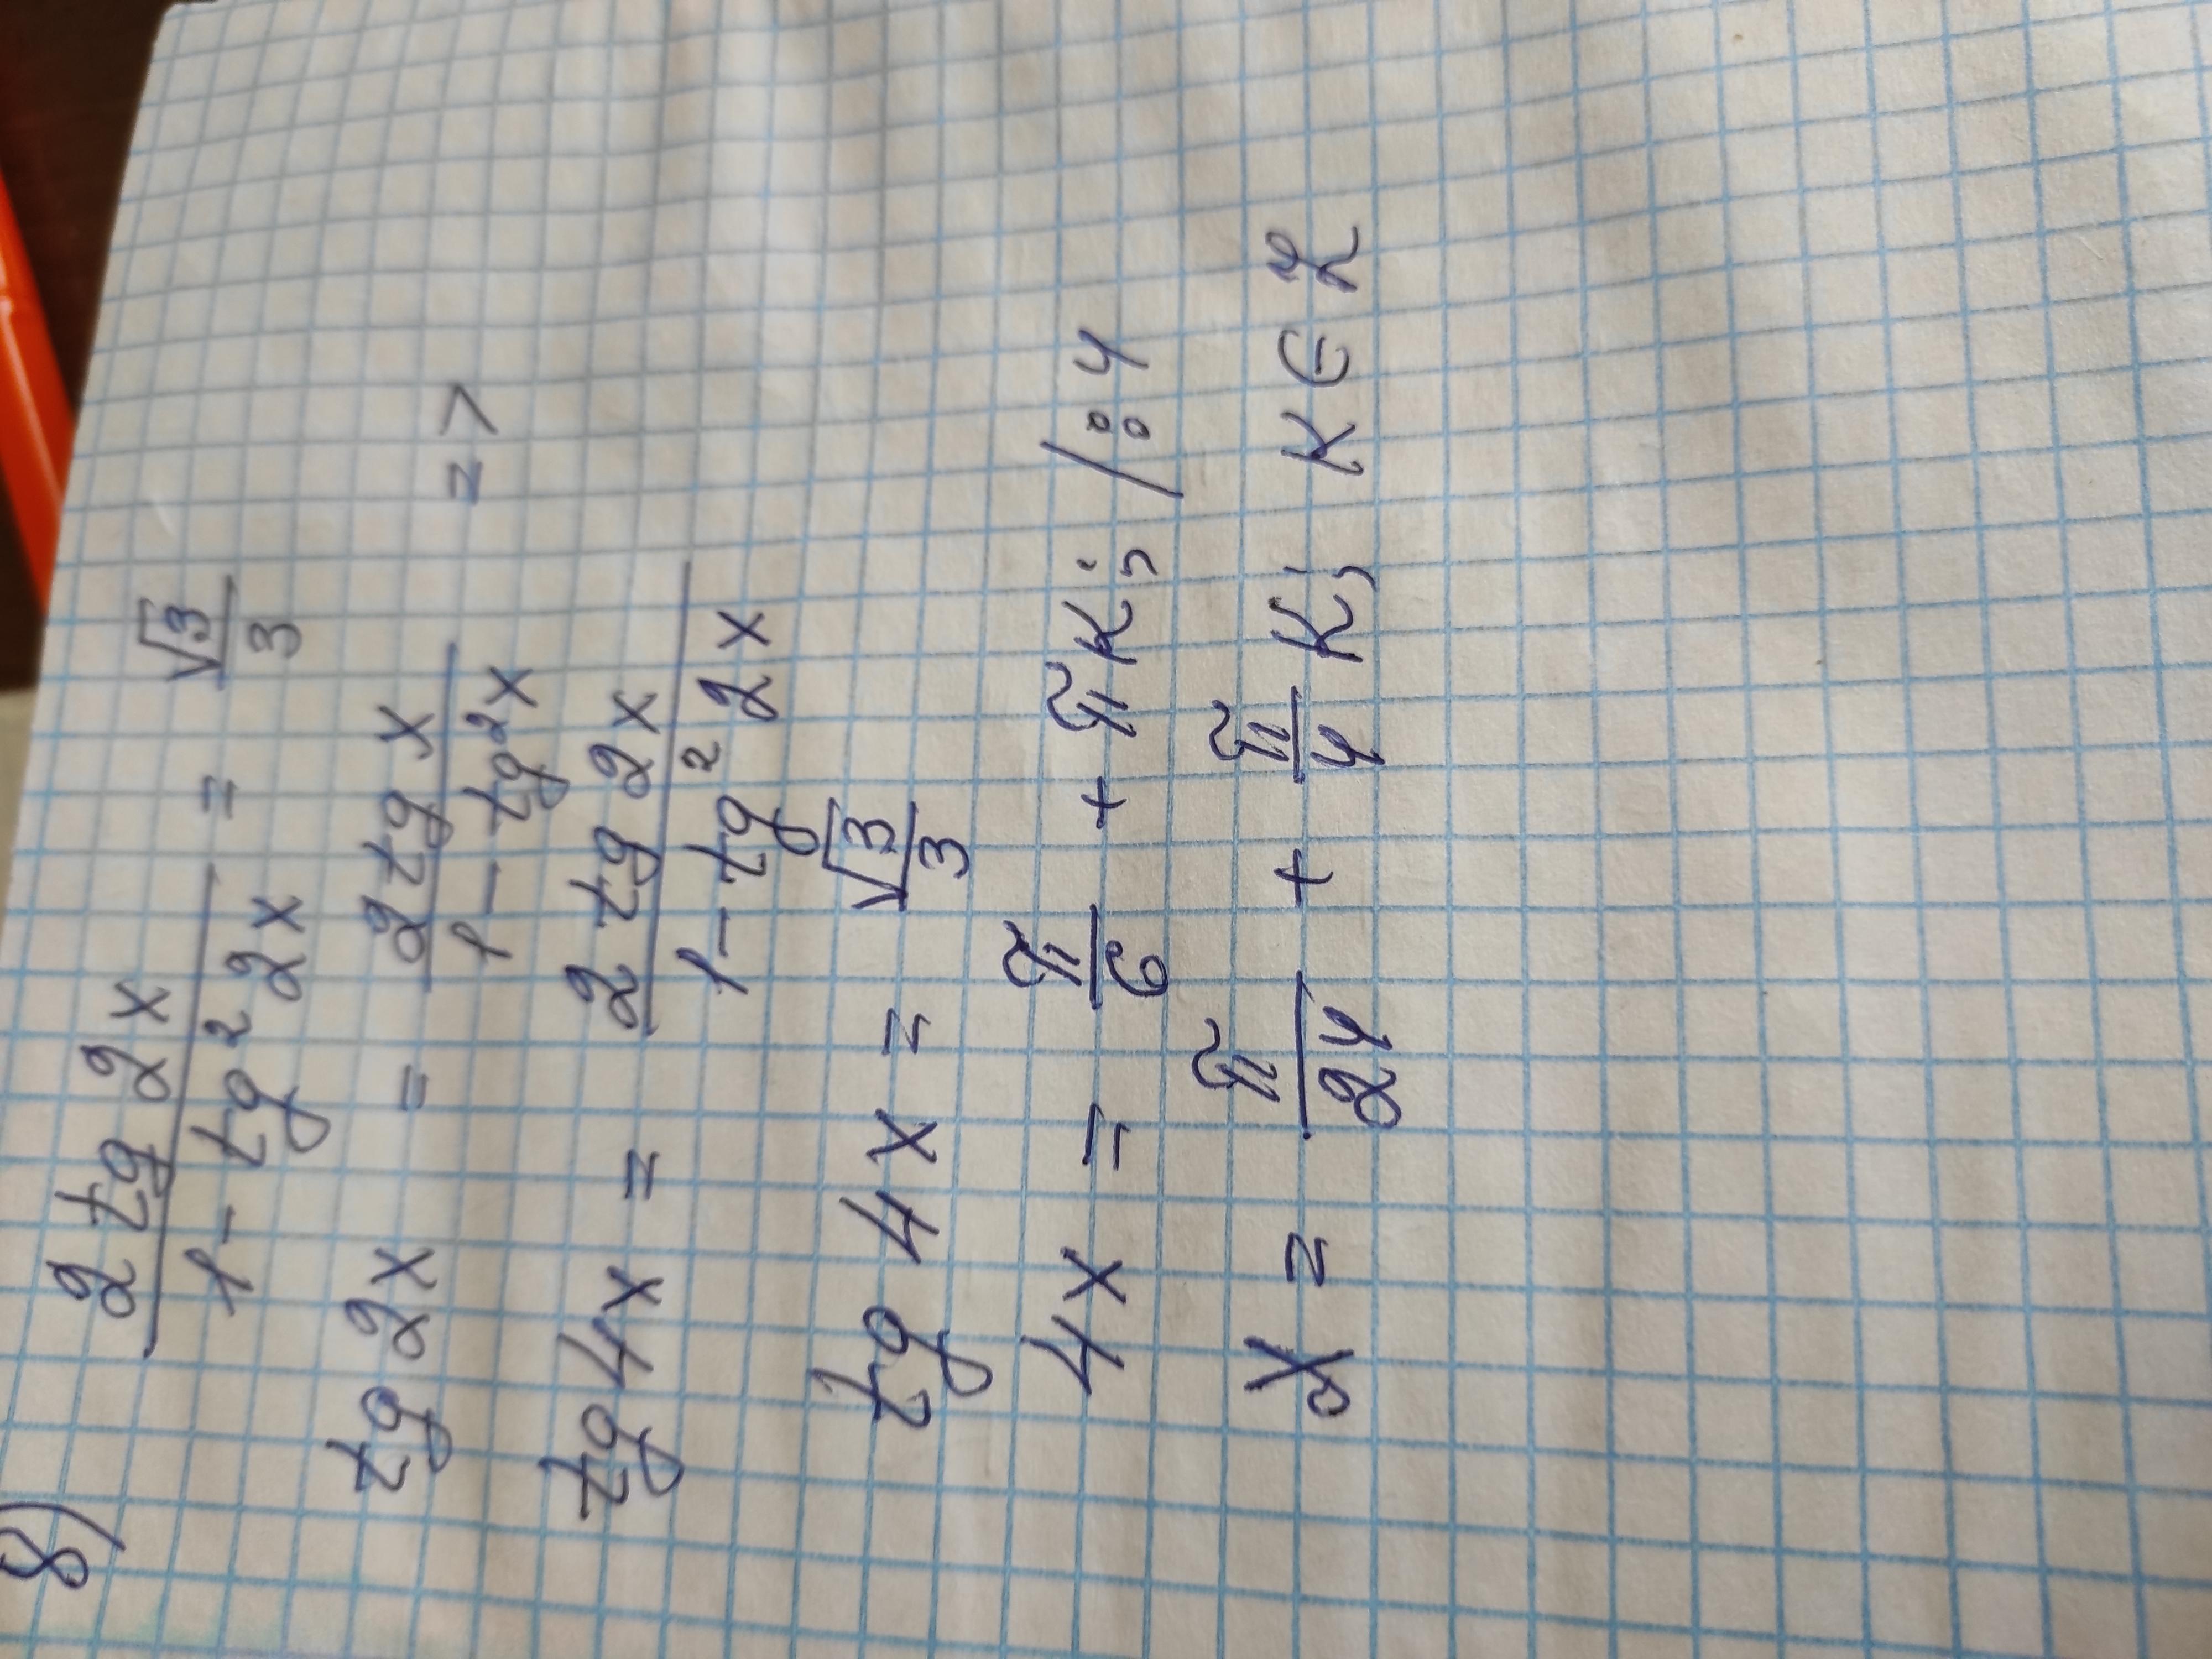 8)
2 tg 2x / 1 - tg² 2x = √3 / 3
tg 2x = 2 tg x / 1 - tg² x =>
tg 4x = 2 tg 2x / 1 - tg² 2x
tg 4x = √3 / 3
4x = π / 6 + πk; / : 4
x = π / 24 + π / 4 k; k ∈ Z